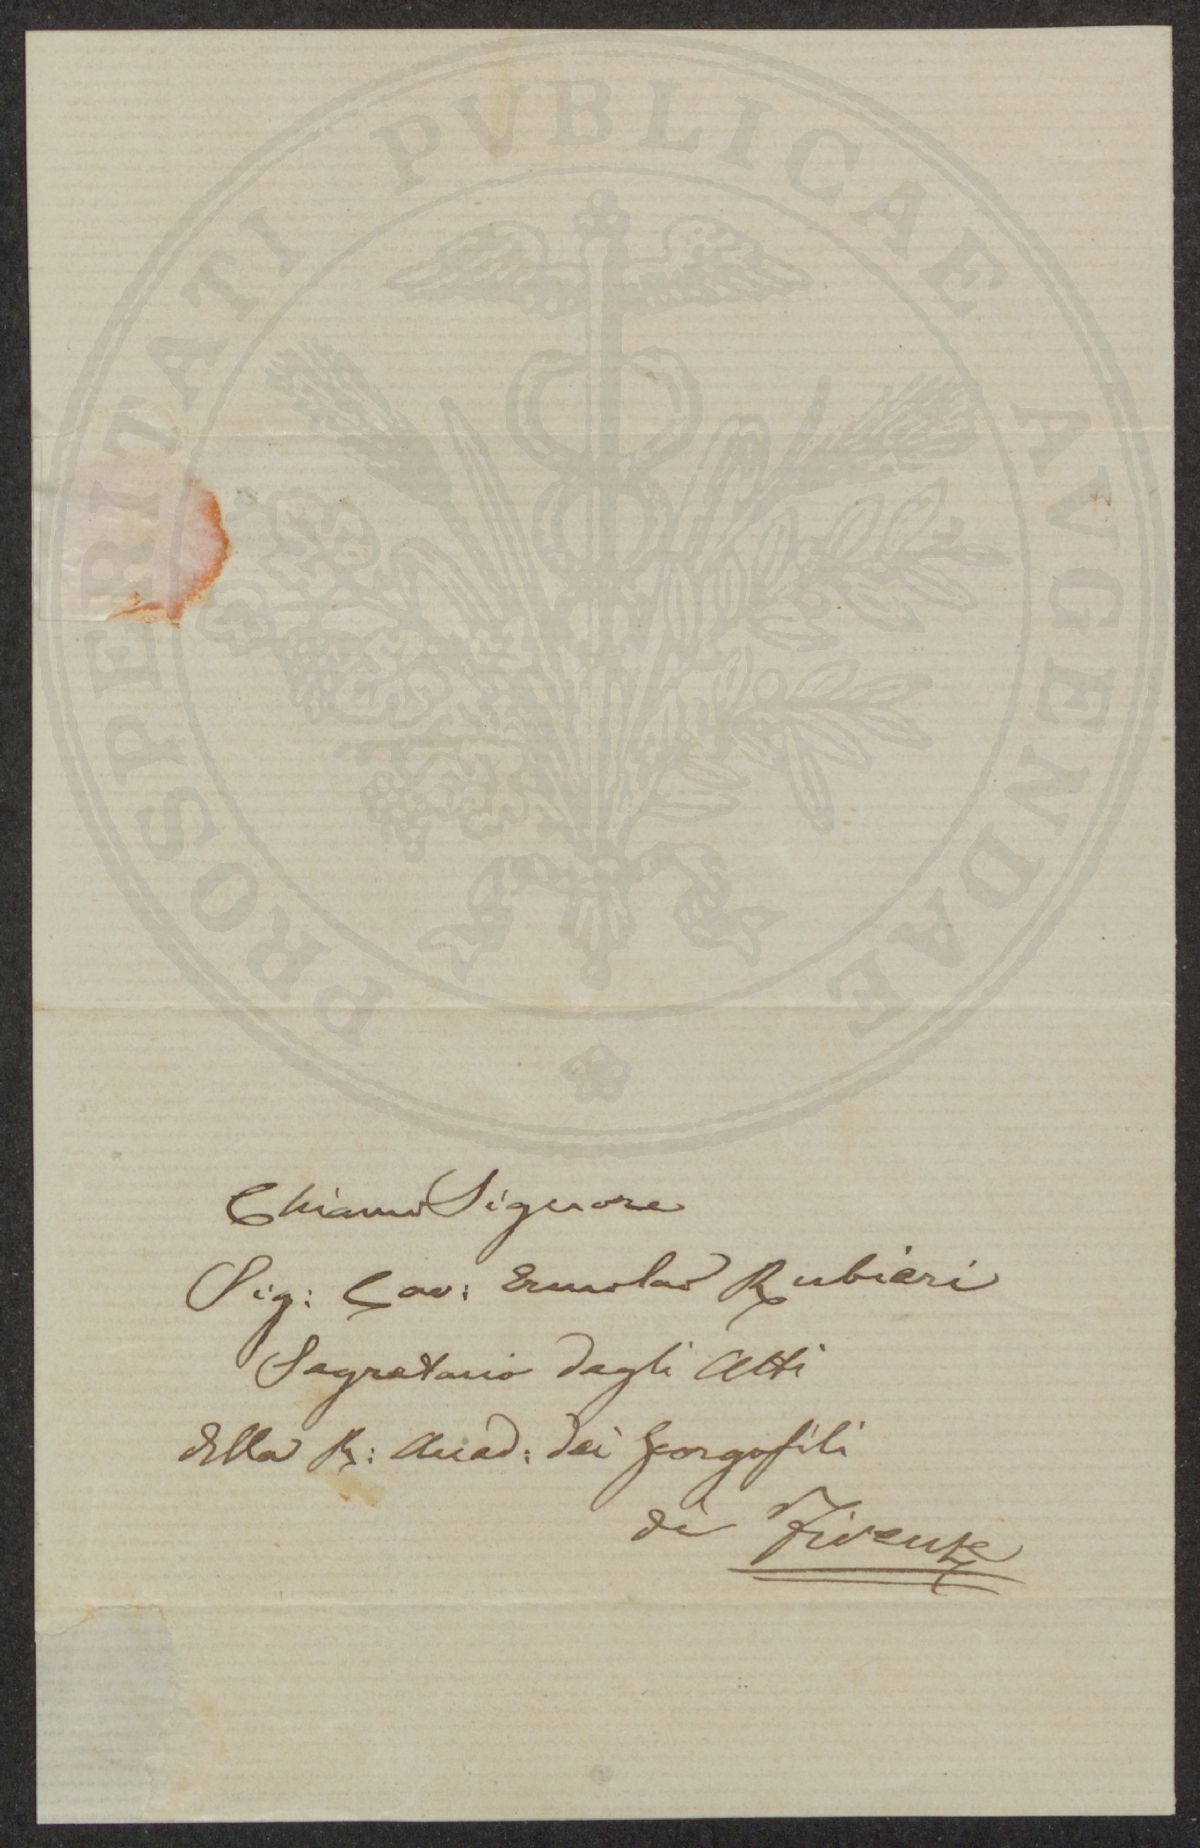 PROSPERITATI PVBLICAE AVGENDAE
Chiarmo Signore
Sig: Cav: Ermolao Rubieri
Segretario degli Atti
della R: Accad: dei Georgofili
di Firenze